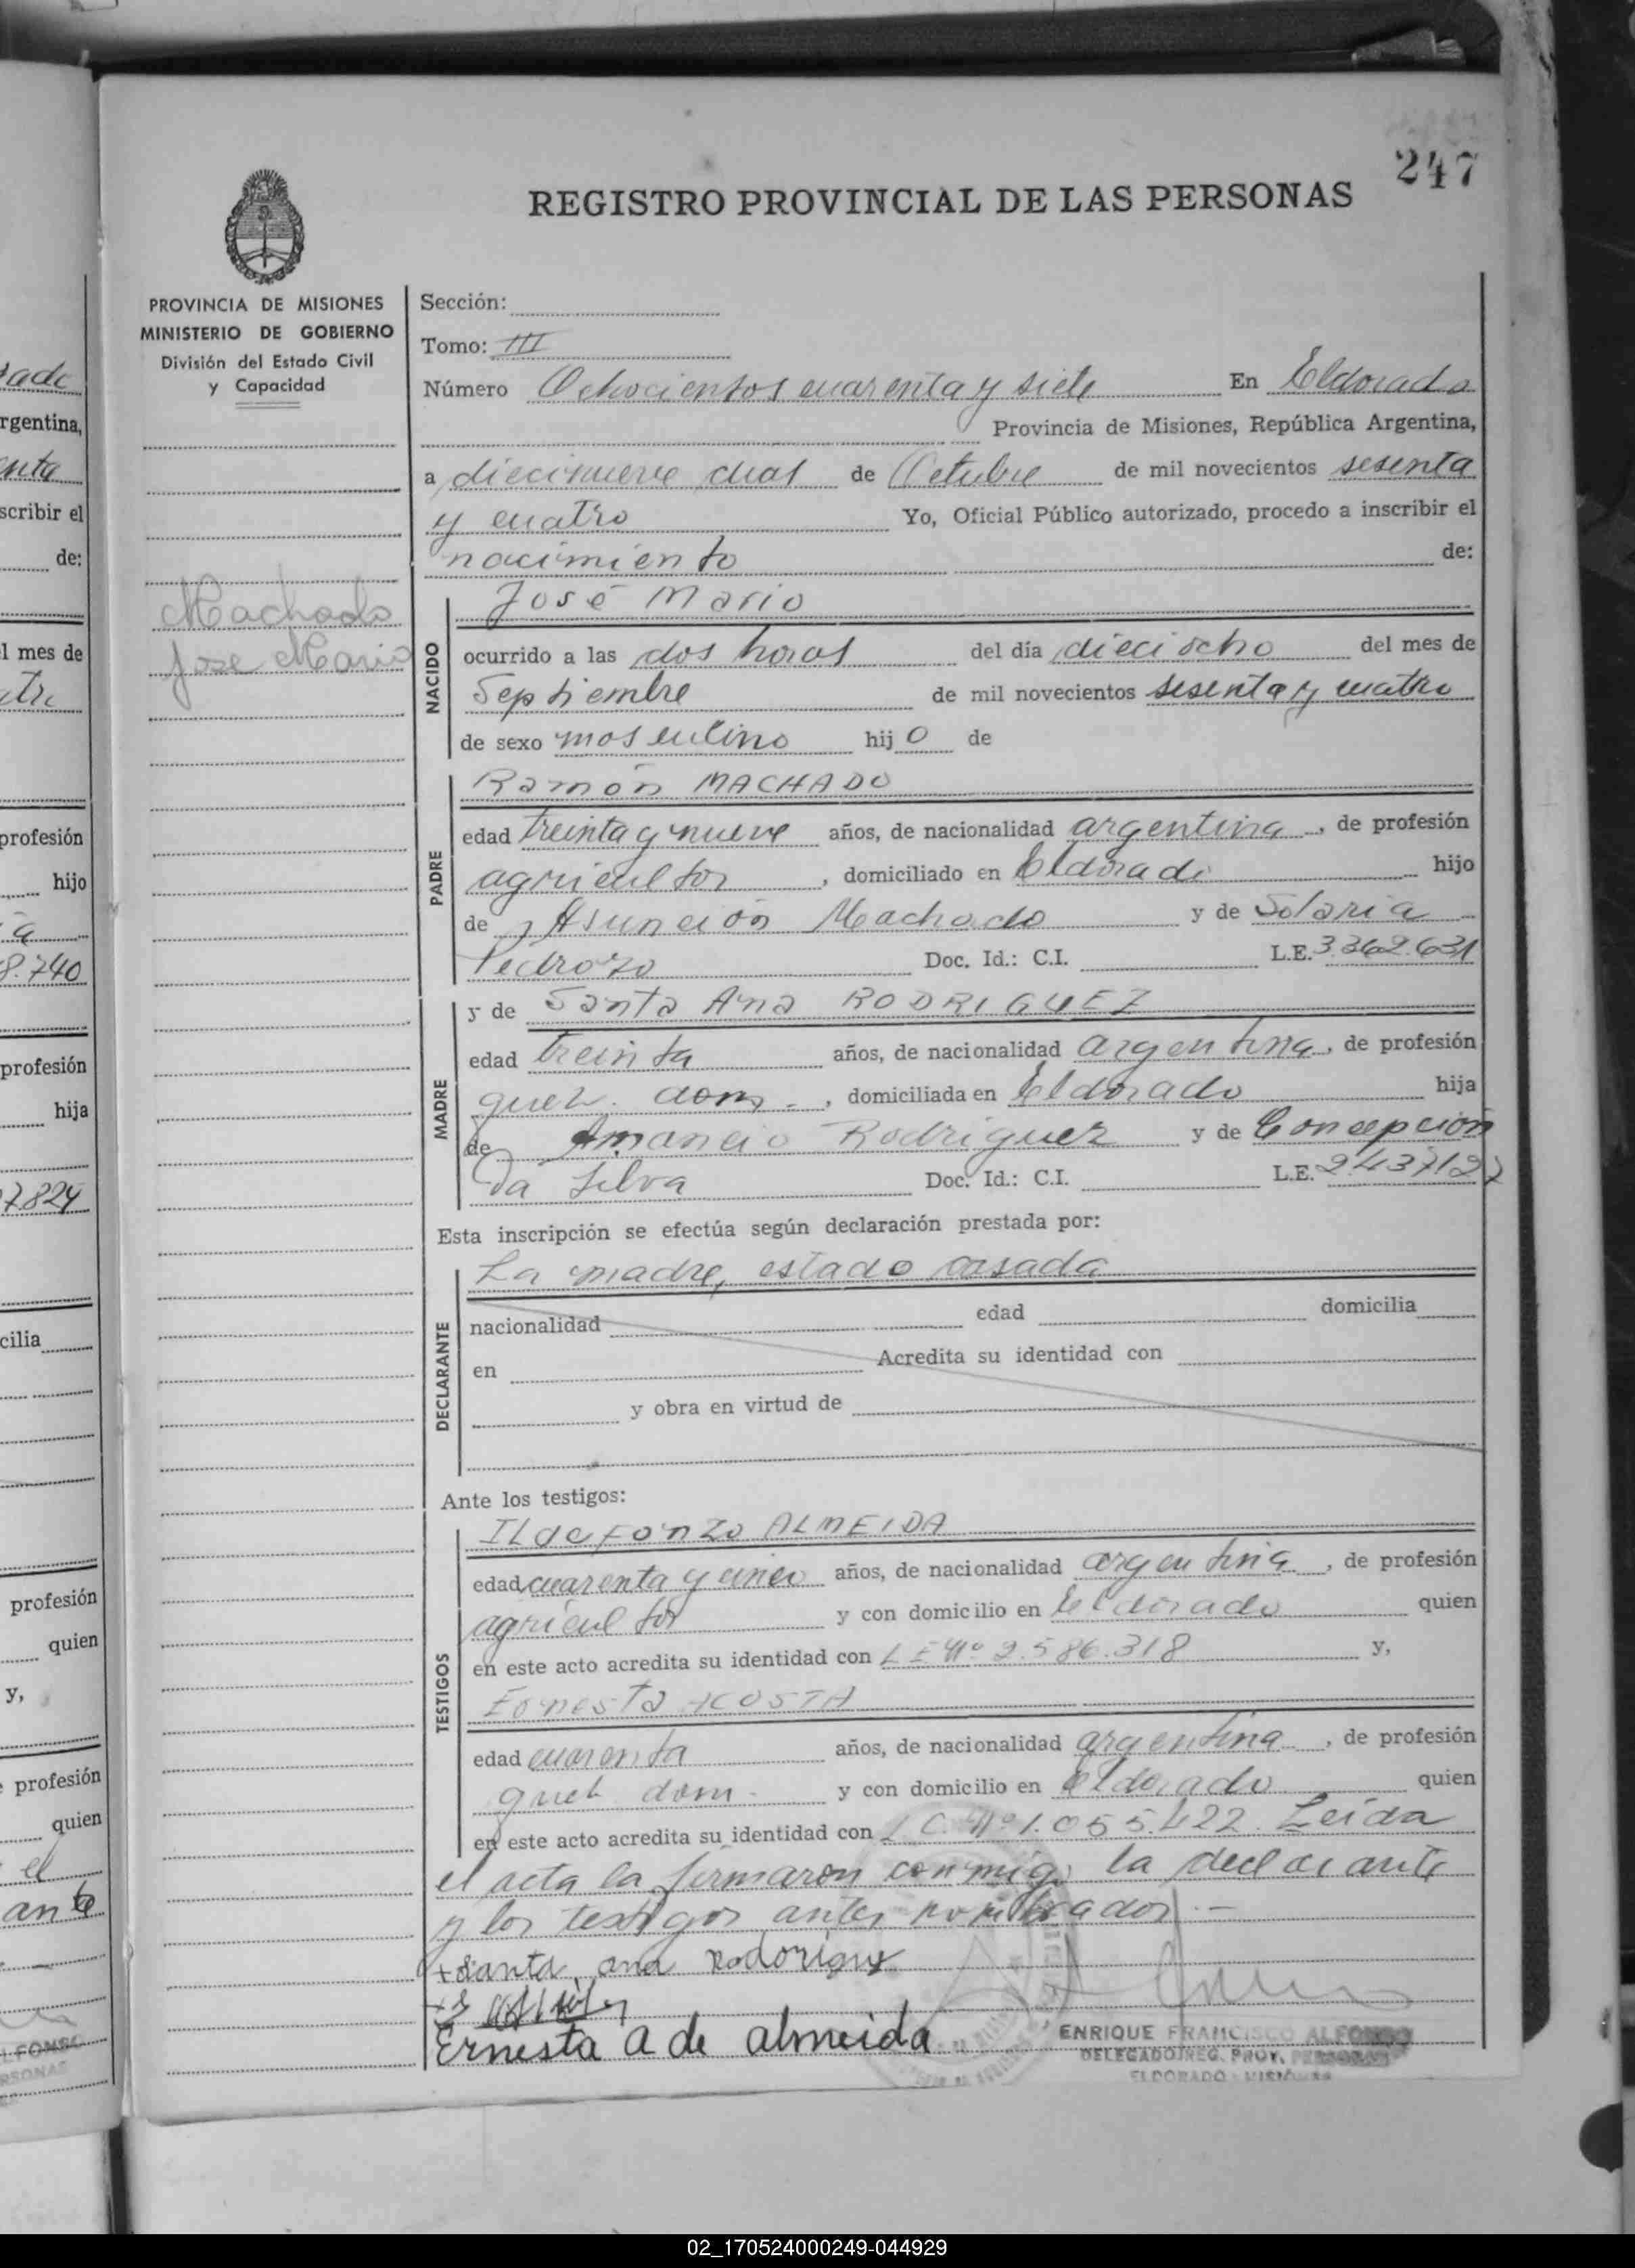 247
REGISTRO PROVINCIAL DE LAS PERSONAS
PROVINCIA DE MISIONES
MINISTERIO DE GOBIERNO
División del Estado Civil
y Capacidad
Machado
Jose Mario
Sección:
Tomo: III
Número Ochocientos cuarenta y siete En Eldorado
Provincia de Misiones, República Argentina,
a diecinueve dias de Octubre de mil novecientos sesenta
y cuatro Yo, Oficial Público autorizado, procedo a inscribir el
nacimiento de:
NACIDO
José Mario
ocurrido a las dos horas del día dieciocho del mes de
Septiembre de mil novecientos sesenta y cuatro
de sexo masculino hij o de
PADRE
Ramón MACHADO
edad treinta y nueve años, de nacionalidad argentina, de profesión
agricultor, domiciliado en Eldorado hijo
de Asunción Machado y de Solaria
Pedrozo Doc. Id.: C.I. L.E. 3.362.631
MADRE
y de Santa Ana RODRIGUEZ
edad treinta años, de nacionalidad argentina, de profesión
queh. dom., domiciliada en Eldorado hija
de Amancio Rodriguez y de Concepción
Da Silva Doc. Id.: C.I. L.E. 2437127
Esta inscripción se efectúa según declaración prestada por:
DECLARANTE
La madre, estado casada
nacionalidad edad domicilia
en Acredita su identidad con
y obra en virtud de
Ante los testigos:
TESTIGOS
ILdefonzo ALMEIDA
edad cuarenta y cinco años, de nacionalidad argentina, de profesión
agricultor y con domicilio en Eldorado quien
en este acto acredita su identidad con L E Nº 2.586.318 y,
Ernesta ACOSTA
edad cuarenta años, de nacionalidad argentina, de profesión
queh. dom. y con domicilio en Eldorado quien
en este acto acredita su identidad con L C. Nº 1.055.422. Leida
el acta la firmaron conmigo la declarante
y los testigos antes nombrados.—
+ Santa ana Rodorigue
Ernesta A de almeida
ENRIQUE FRANCISCO ALFONSO
DELEGADO REG. PROV. PERSONAS
ELDORADO - MISIONES
rgentina,
scribir el
de:
l mes de
profesión
hijo
8.740
profesión
hija
7.824
cilia
profesión
quien
y,
profesión
quien
el
ante
02_170524000249-044929